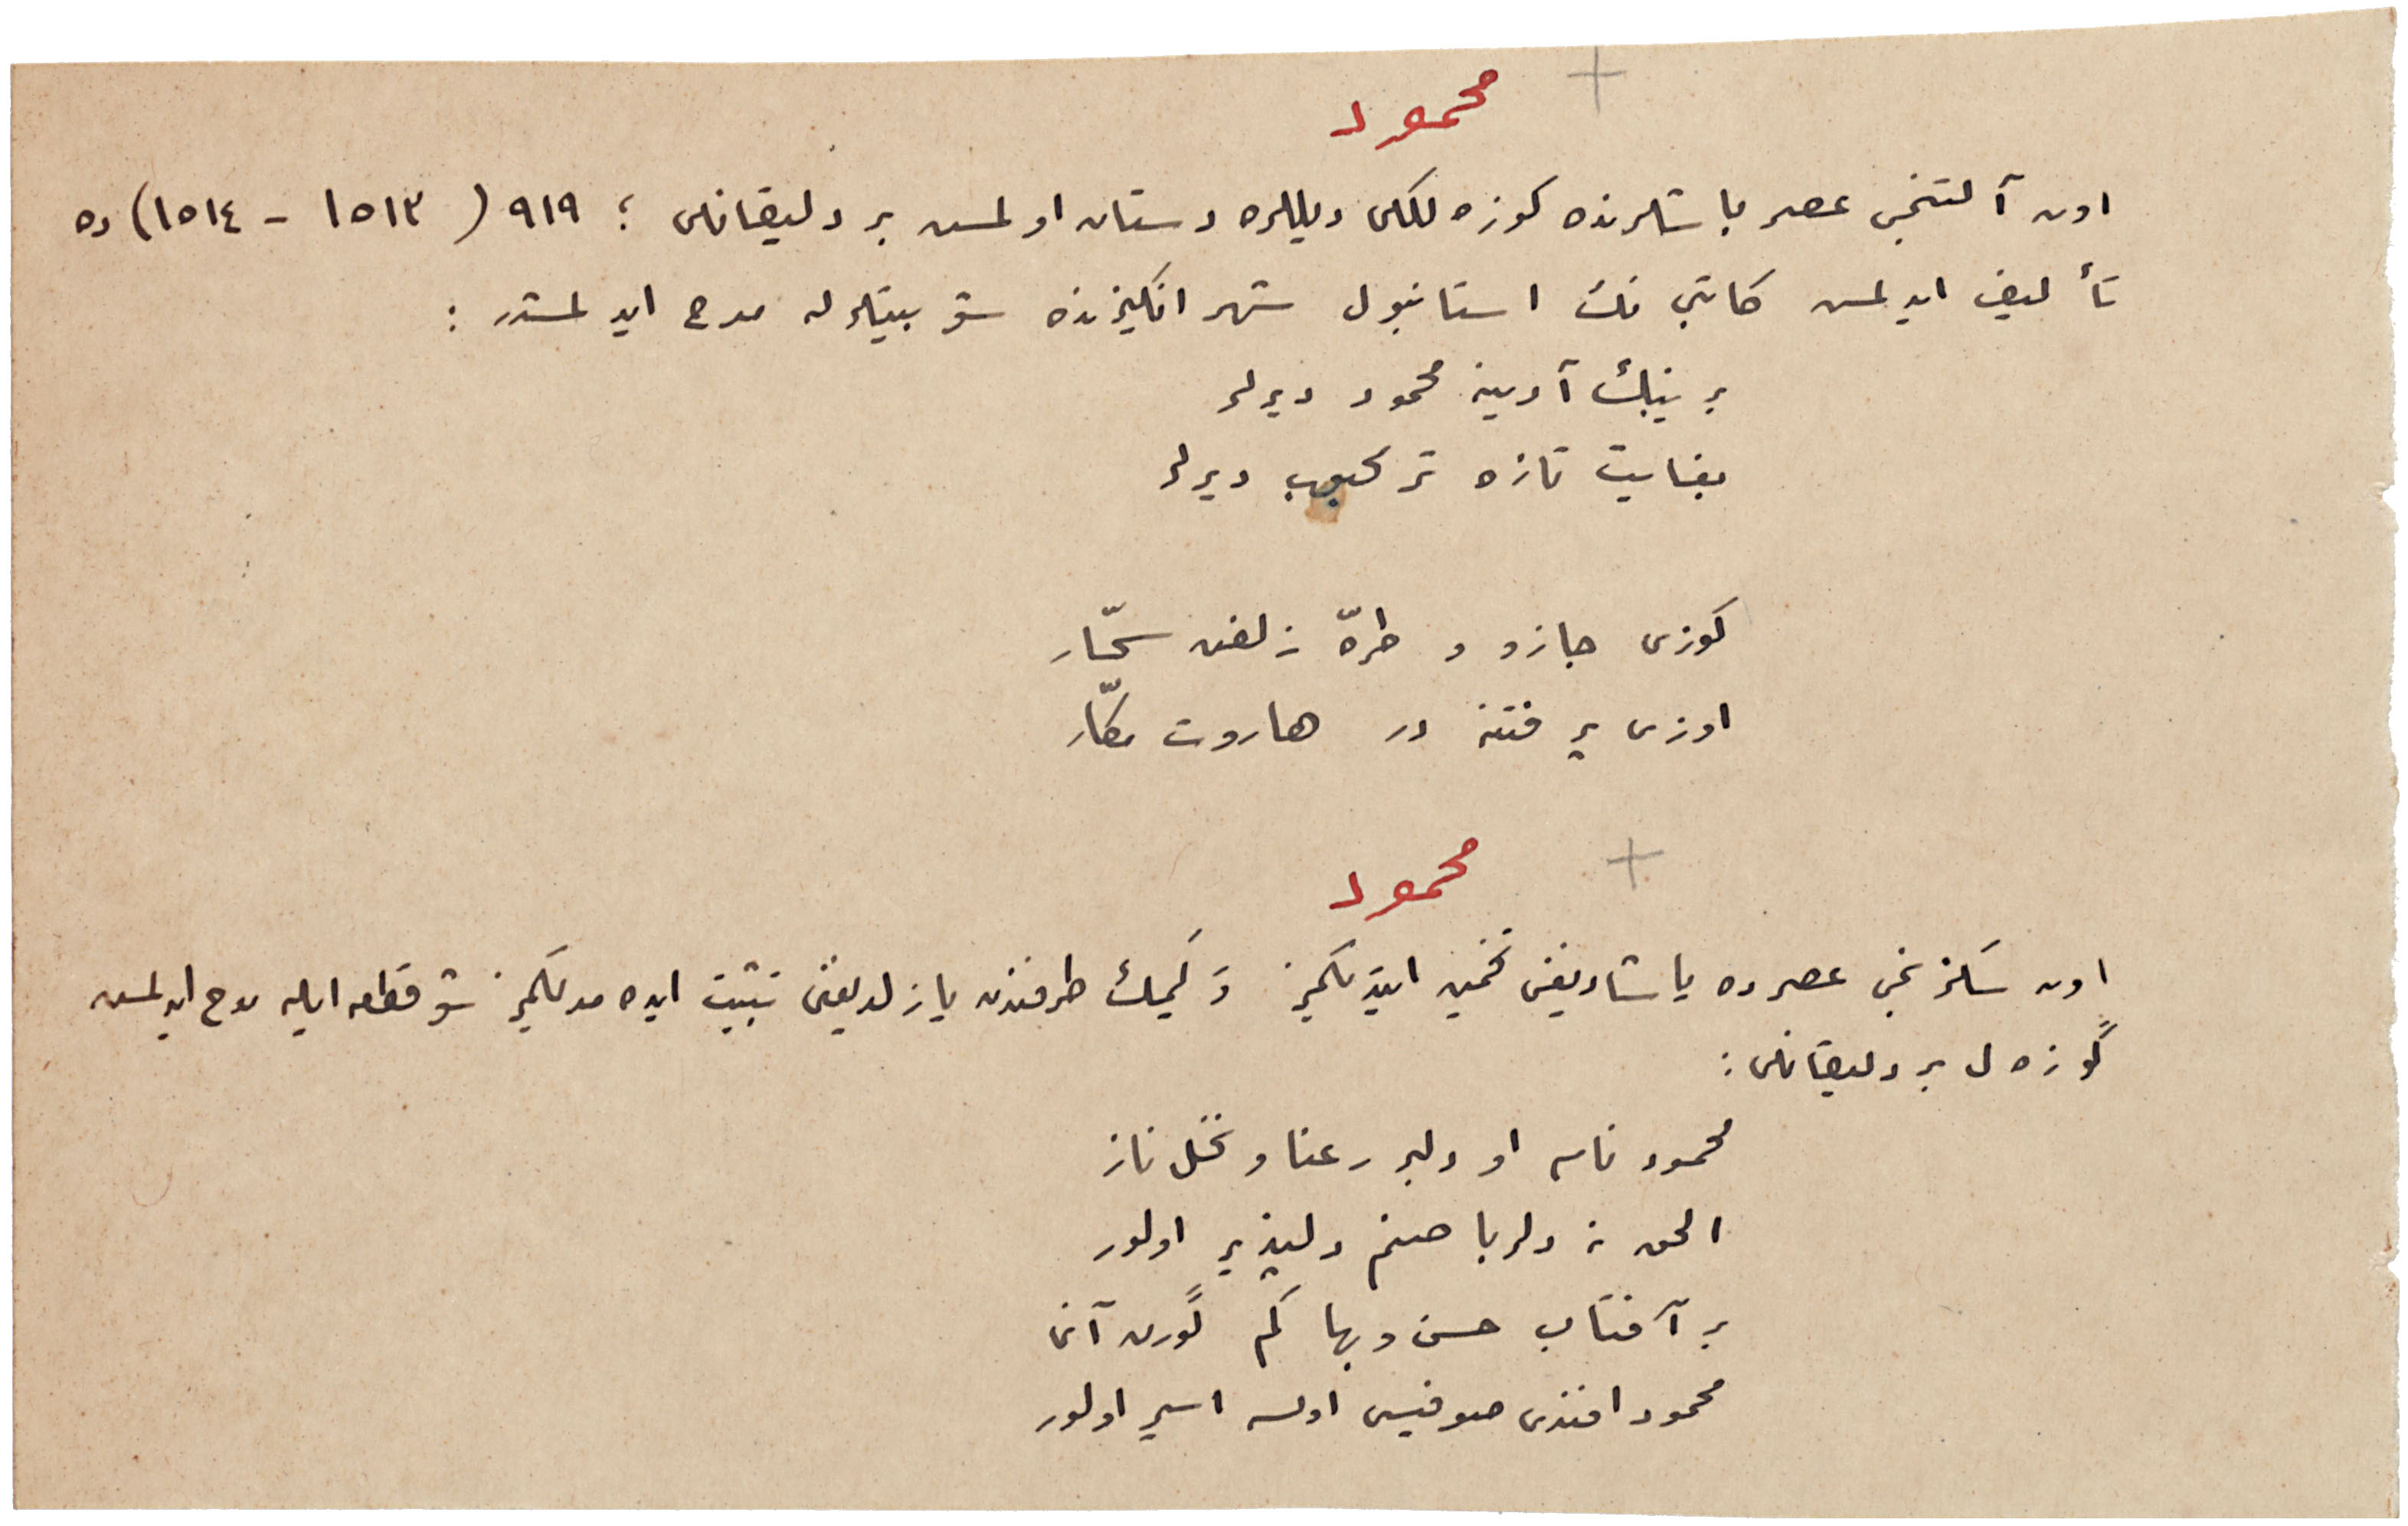 محمود
اون آلتنجی عصر باشلرنده كوزه للكی دیللره دستان اولمش بر دلیقانلی ؛ ٩١٩ ( ١٥١٣ - ١٥١٤ ) ده
تألیف ایدلمش كاتبی نك استانبول شهر انكیزنده شو بیتلرله مدح ایدلمشدر :
بریبنك آدینه محمود دیرلر
بغایت تازه تر محبوب دیرلر
كوزی جازو و طرهّ زلفی سحّار
اوزی پر فتنه در هاروت مكّار
محمود
اون سكزنجی عصرده یاشادیغنی تخمین ایتدیكمز و كیمك طرفندن یازلدیغنی تثبیت ایده مدیكمز شو قطعه ایله مدح ایدلمش
گوزه ل بر دلیقانلی :
محمود نام او دلبر رعنا و نخل ناز
الحق نه دلربا صنم دلپذیر اولور
بر آفتاب حسن و بها كم گورن آنی
محمود افندی صوفیسی اولسه اسیر اولور